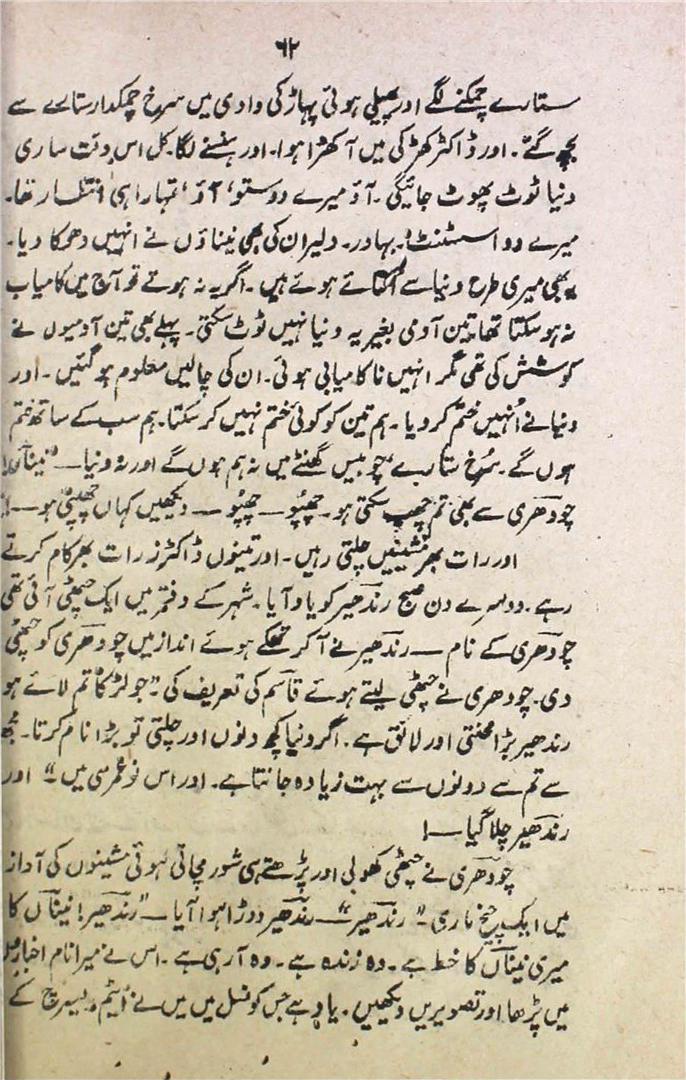 ۶۲
ستارے چمکنے لگے اور پھیلی ہوئی پہاڑ کی وادی میں سرخ چمکدار ستارے سے
بچھ گئے۔ اور ڈاکٹر کھڑکی میں آ کھڑا ہوا۔ اور ہنسنے لگا۔ کل اس وقت ساری
دنیا ٹوٹ پھوٹ جائیگی۔ آؤ میرے دوستو، آؤ، تمہارا ہی انتظار تھا۔
میرے دو اسسٹنٹ، بہادر۔ دلیر ان کی بھی نیناؤں نے انہیں دھمکا دیا۔
یہ بھی میری طرح دنیا سے اکتائے ہوئے ہیں۔ اگر یہ نہ ہوتے تو آج میں کامیاب
نہ ہو سکتا تھا، تین آدمی بغیر یہ دنیا نہیں ٹوٹ سکتی۔ پہلے بھی تین آدمیوں نے
کوشش کی تھی مگر انہیں ناکامیابی ہوئی۔ ان کی چالیں معلوم ہو گئیں۔ اور
دنیا نے اُنہیں ختم کر دیا۔ ہم تین کو کوئی ختم نہیں کر سکتا۔ ہم سب کے ساتھ ختم
ہوں گے۔ سُرخ ستارے، چوبیس گھنٹے میں نہ ہم ہوں گے اور نہ دنیا — "نیناں
چودھری سے بھی تم چھپ سکتی ہو۔ چھپو — چھپو — دیکھیں کہاں چھپتی ہو —!"
اور رات بھر مشینیں چلتی رہیں۔ اور تینوں ڈاکٹرز رات بھر کام کرتے
رہے۔ دوسرے دن صبح رندھیر کو یاد آیا۔ شہر کے دفتر میں ایک چٹھی آئی تھی
چودھری کے نام — رندھیر نے آ کر تھکے ہوئے انداز میں چودھری کو چٹھی
دی۔ چودھری نے چٹھی لیتے ہوئے قاسم کی تعریف کی "جو لڑکا تم لائے ہو
رندھیر بڑا محنتی اور لائق ہے۔ اگر دنیا کچھ دنوں اور چلتی تو بڑا نام کرتا۔ مجھ
سے تم سے دونوں سے بہت زیادہ جانتا ہے۔ اور اس نو عمری میں۔" اور
رندھیر چلا گیا —!
چودھری نے چٹھی کھولی اور پڑھتے ہی شور مچاتی ہوئی مشینوں کی آواز
میں ایک چیخ ماری۔ "رندھیر" — رندھیر دوڑا ہوا آیا — "رندھیر! نیناں کا
میری نیناں کا خط ہے۔ وہ زندہ ہے۔ وہ آ رہی ہے۔ اس نے میرا نام اخبار
میں پڑھا اور تصویریں دیکھیں۔ یاد ہے جس کونسل میں میں نے ایٹم ریسرچ کے